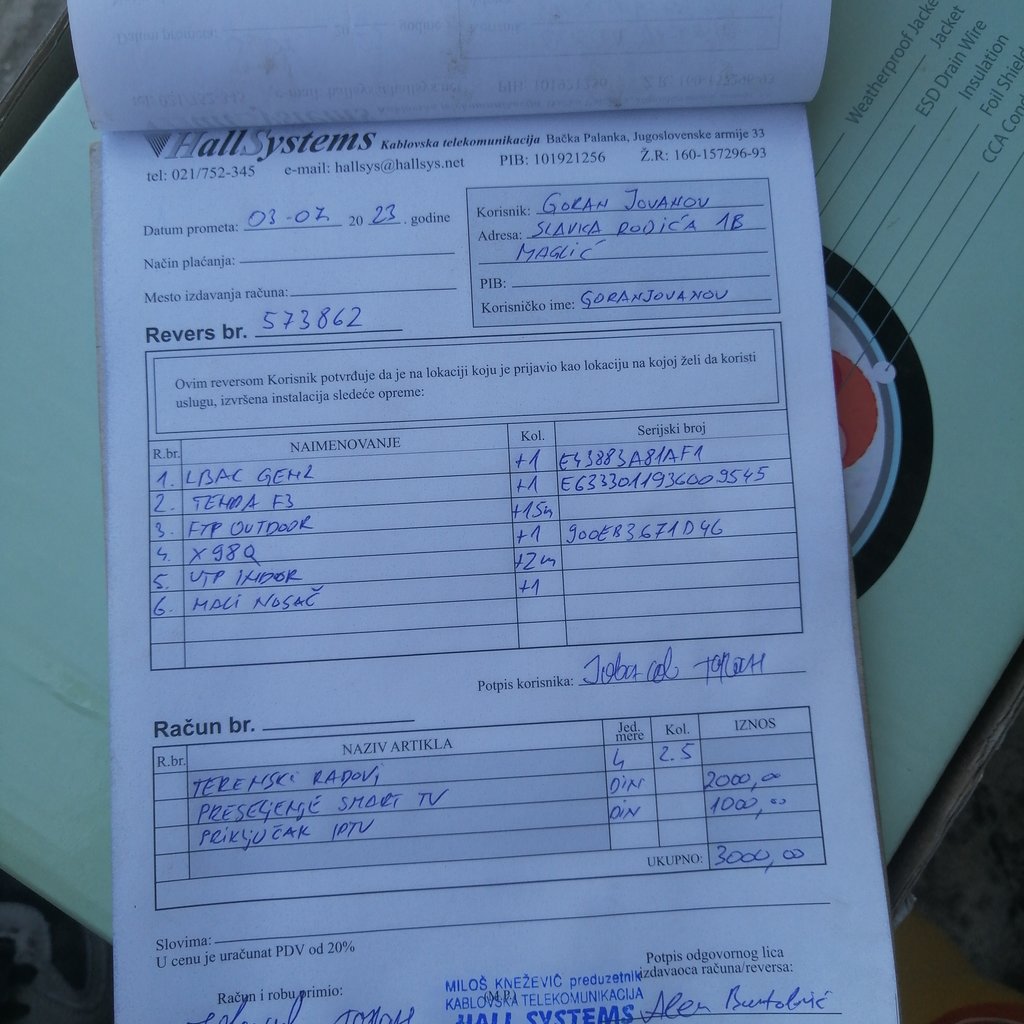 HallSystems Kablovska telekomunikacija Bačka Palanka, Jugoslovenske armije 33
tel: 021/752-345 e-mail: hallsys@hallsys.net PIB: 101921256 Ž.R: 160-157296-93
Datum prometa: 03-07 20 23. godine
Način plaćanja:
Mesto izdavanja računa:
Revers br. 573862
Korisnik: GORAN JOVANOV
Adresa: SLAVKA RODIĆA 1B
MAGLIĆ
PIB:
Korisničko ime: GORANJOVANOV
Ovim reversom Korisnik potvrđuje da je na lokaciji koju je prijavio kao lokaciju na kojoj želi da koristi
uslugu, izvršena instalacija sledeće opreme:
R.br. NAIMENOVANJE Kol. Serijski broj
1. LBAC GEN2 +1 E43883A81AF1
2. TENDA F3 +1 E6333011936009545
3. FTP OUTDOOR +15m
4. X98Q +1 900EB3671D46
5. UTP INDOR +2m
6. MALI NOSAČ +1
Potpis korisnika:
Račun br.
R.br. NAZIV ARTIKLA Jed. mere Kol. IZNOS
TERENSKI RADOVI 4 2.5
PRESELJENJE SMART TV DIN 2000,00
PRIKLJUČAK IPTV DIN 1000,00
UKUPNO: 3000,00
Slovima:
U cenu je uračunat PDV od 20%
Potpis odgovornog lica
izdavaoca računa/reversa:
Račun i robu primio:
(M.P.)
MILOŠ KNEŽEVIĆ preduzetnik
KABLOVSKA TELEKOMUNIKACIJA
HALL SYSTEMS
Weatherproof Jacke
Jacket
ESD Drain Wire
Insulation
Foil Shield
CCA Con